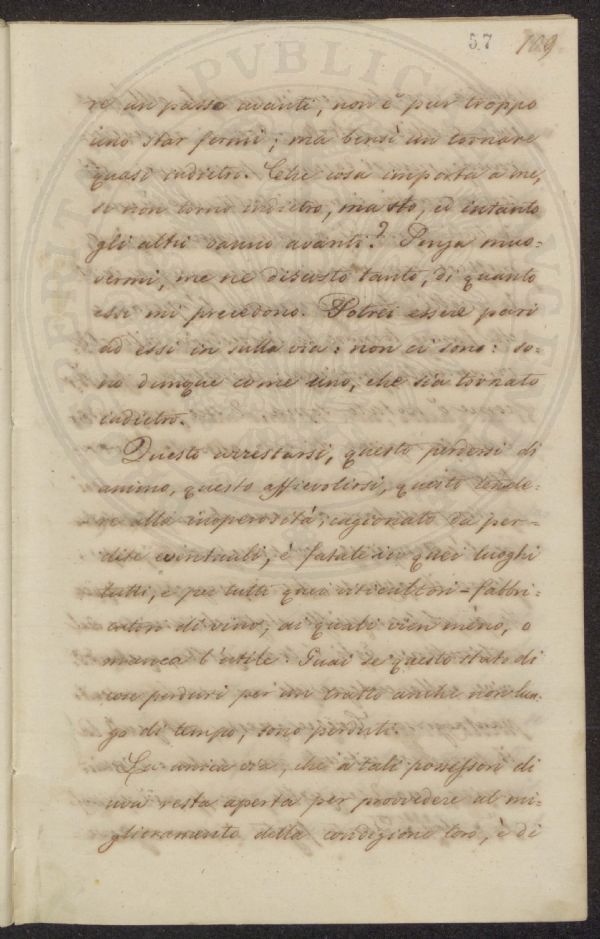 57 109
re un passo avanti, non è pur troppo
uno star fermi; ma bensì un tornare
quasi indietro. Che cosa importa a me,
se non torno indietro, ma sto, ed intanto
gli altri vanno avanti? Senza muo-
vermi, me ne discosto tanto, di quanto
essi mi precedono. Potrei essere pari
ad essi in sulla via: non ci sono: so-
no dunque come uno, che sia tornato
indietro.
Questo arrestarsi, questo perdersi di
animo, questo affievolirsi, questo tende-
re alla inoperosità, cagionato da per-
dite eventuali, è fatale in quei luoghi
tutti, e per tutti quei viticultori-fabbri-
catori di vino, ai quali vien meno, o
manca l'utile. Guai se questo stato di
cose perduri per un tratto anche non lun-
go di tempo, sono perduti.
La unica via, che a tali possessori di
uva resta aperta per provvedere al mi-
glioramento della condizione loro, è di